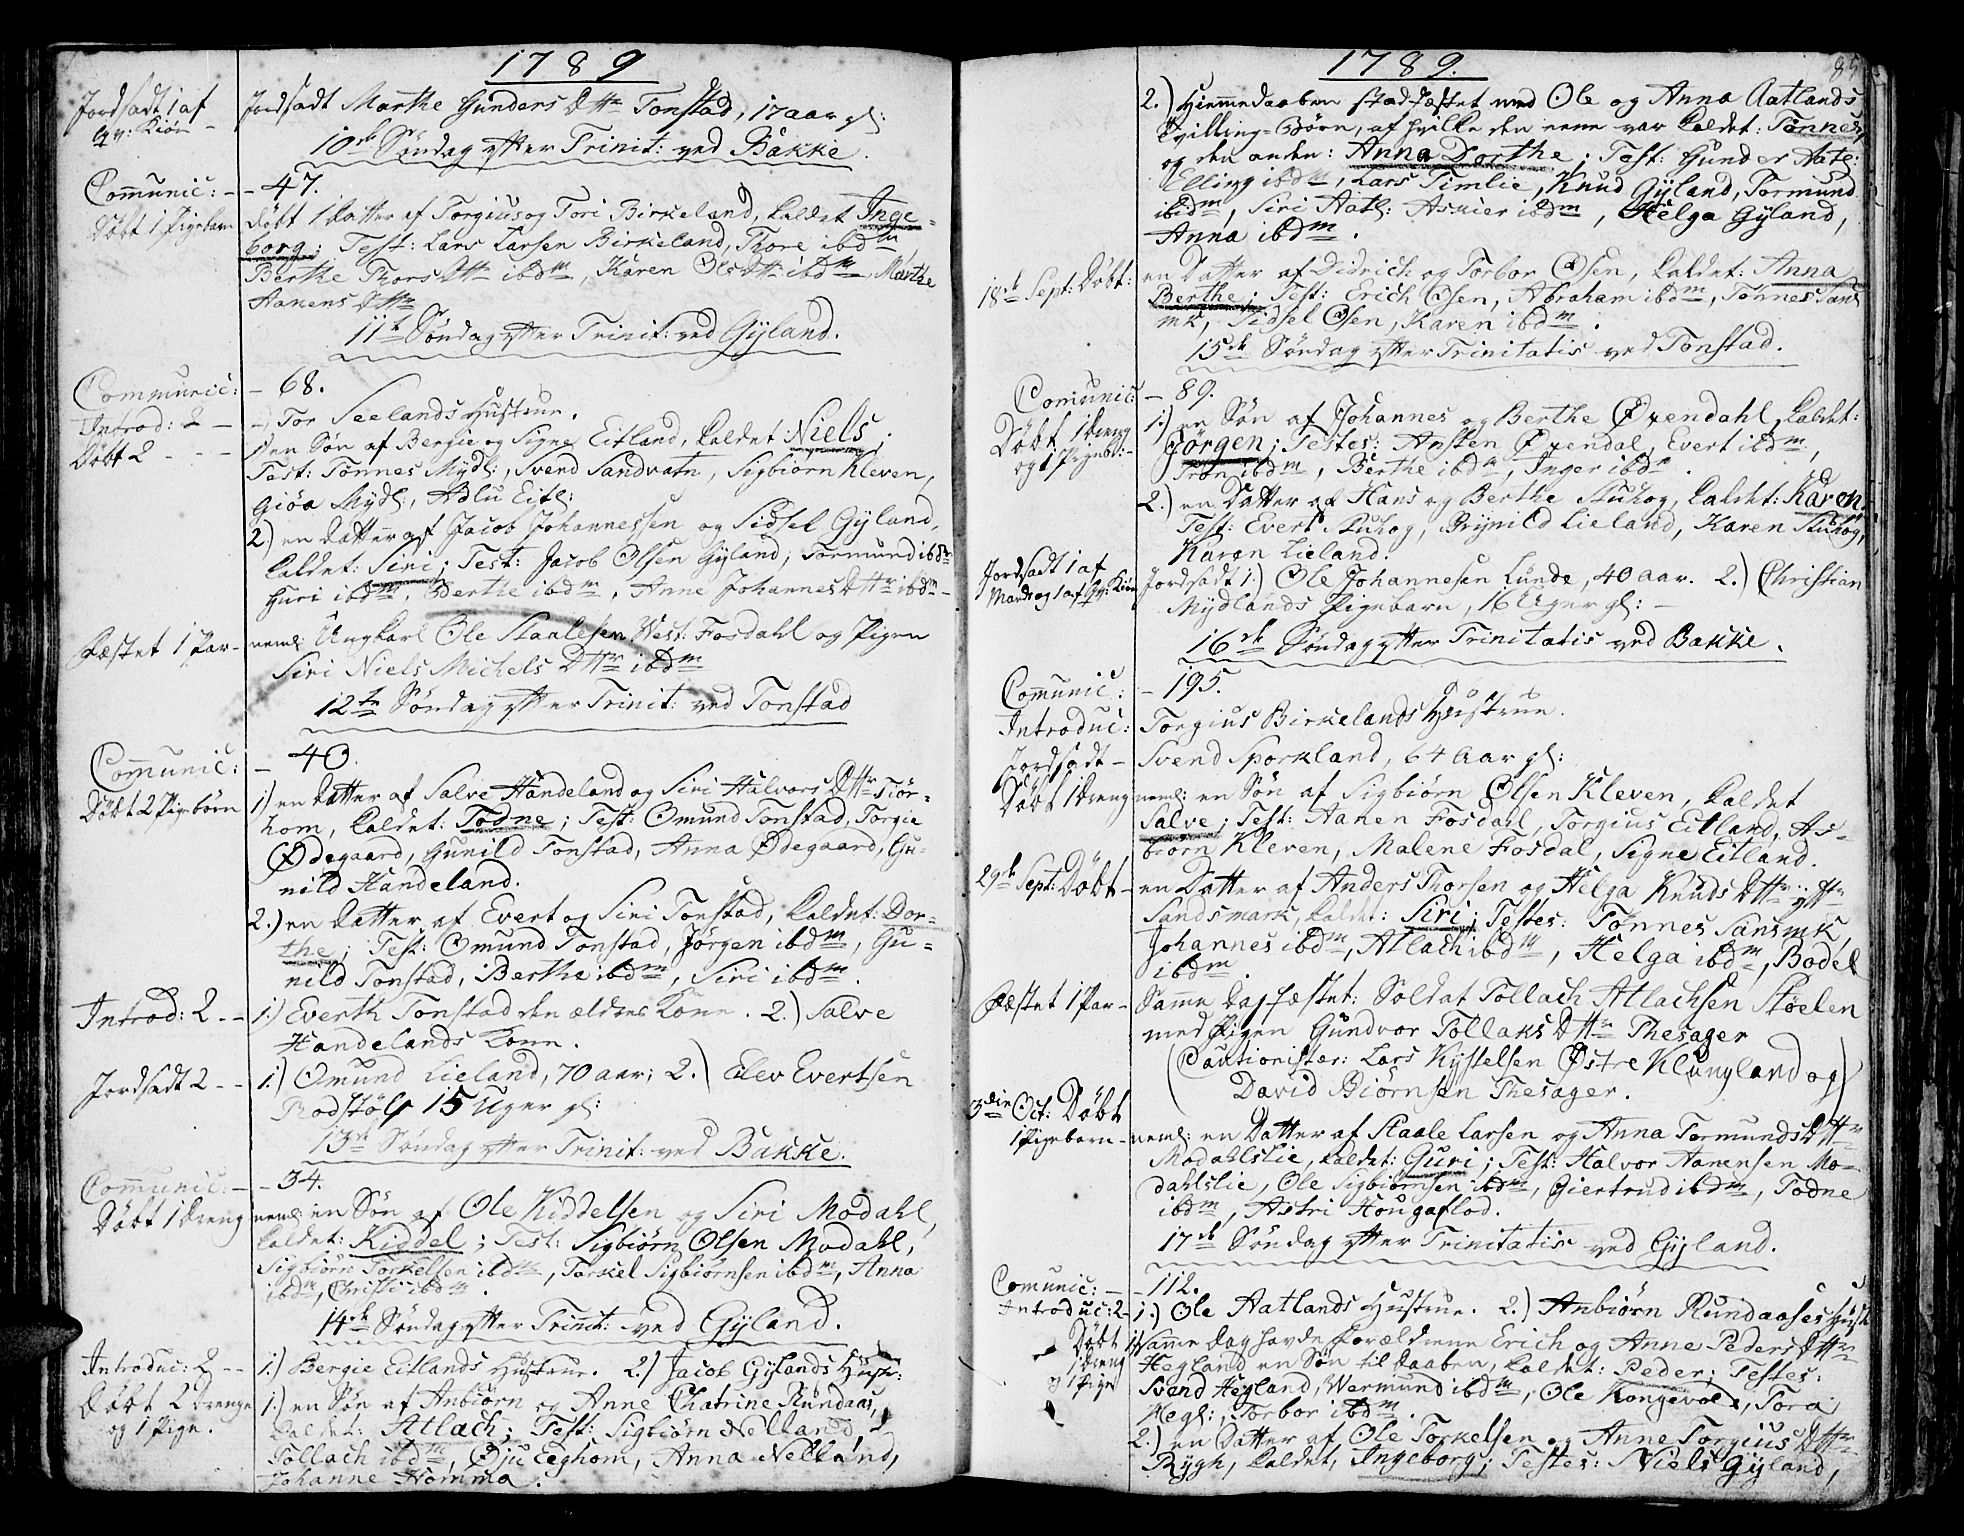 1789
Jordsadt 1 af Jordsadt Marthe Gunders Dttr Tonstad, 17 aar gl:
Qv: Kiön -
10de Søndag efter Trinit: ved Bakke.
Comunic: - - 47.
Döbt 1 Pigebarn Döbt 1 Datter af Torgius og Tori Birkeland, kaldet Inge-
borg; Test: Lars Larsen Birkeland, Thore ibdm
Berthe Thors Dttr ibdm, Karen Ols Dttr ibdm, Marthe
Aanens Dttr
11te Søndag efter Trinit: ved Gyland.
Communic: - 68.
Introd: Tor Seelands Hustrue.
Döbt 2 - - - 1) en Søn af Bergie og Signe Eitland, kaldet: Niels;
Test: Tønnes Mydl:, Svend Sandvatn, Sigbiörn Kleven,
Giöa Mydl:, Adlu Eitl:
2.) en Datter af Jacob Johannessen og Sidsel Gyland,
kaldet: Siri; Test: Jacob Olsen Gyland, Tormund ibdm
Guri ibdm, Berthe ibdm, Anne Johannes Dttr ibdm -
Fæstet 1 Par - neml: Ungkarl Ole Staalesen West: Fosdahl og Pigen
Siri Niels Michels Dttr ibdm
12te Søndag efter Trinit: ved Tonstad
Communic: - 40.
Döbt 2 Pigebörn 1) en Datter af Salve Handeland og Siri Halvors Dttr Tiör-
hom, kaldet: Todne; Test: Omund Tonstad, Torgie
Ødegaard, Gunild Tonstad, Anna Ødegaard, Gu-
nild Handeland.
2.) en Datter af Evert og Siri Tonstad, kaldet: Dor-
the; Test: Omund Tonstad, Jörgen ibdm, Gu-
nild Tonstad, Berthe ibdm, Siri ibdm.
Introd: 2 - - 1.) Everth Tonstad den ældres Kone. 2.) Salve
Handelands Kone.
Jordsadt 2 - - 1.) Omund Lieland, 70 aar; 2.) Elev Evertsen
Rodstöl 15 Uger gl:
13de Søndag efter Trinit: ved Bakke.
Communic: - - 34.
Döbt 1 Dreng neml: en Søn af Ole Kiddelsen og Siri Modahl,
kaldet: Kiddel; Test: Sigbiörn Olsen Modahl,
Sigbiörn Torkelsen ibdm, Torkel Sigbiörnsen ibdm, Anna
ibdm, Christi ibdm.
14de Søndag efter Trinit: ved Gyland.
Introduc: 2 - - 1.) Bergie Eitlands Hustrue. 2.) Jacob Gylands Hustr:
Döbt 2 Drenge 1.) en Søn af Anbiörn og Anne Chatrine Rundaas,
og 1 Pige. kaldet: Atlach; Test: Sigbiörn Nelland,
Tollach ibdm, Öju Eeghom, Anna Nelland,
Johanne Homma.
1789. 85
2.) Hiemmedaaben stadfæstet med Ole og Anna Aatlands
Tvilling-Börn, af hvilke den eene var kaldet: Tönnes,
og den anden: Anna Dorthe; Test: Gunder Aatl:
Elling ibdm, Lars Timlie, Knud Gyland, Tormund
ibdm, Siri Aatl: Askier ibdm, Helga Gyland,
Anna ibdm.
18de Sept: Döbt: en Datter af Didrich og Torbor Osen, kaldet: Anna
Berthe; Test: Erich Osen, Abraham ibdm, Tønnes Sans
mk, Sidsel Osen, Karen ibdm.
15de Søndag efter Trinitatis ved Tonstad.
Comunic: - 89.
Döbt 1 Dreng 1.) en Søn af Johannes og Berthe Øxendahl, kaldet:
og 1 Pigeb: - Jörgen; Testes: Ansten Øxendal, Evert ibdm,
Tron ibdm, Berthe ibdm, Inger ibdm.
2.) en Datter af Hans og Berthe Stuhog, kaldet: Karen.
Test: Evert Stuhog, Brynild Lieland, Karen Stuhog,
Karen Lieland.
Jordsadt 1 af Jordsadt 1.) Ole Johannesen Lunde, 40 aar. 2.) Christian
Mandk og 1 af Qv: Kiön Mydlands Pigebarn, 16 Uger gl: -
16de Søndag efter Trinitatis ved Bakke.
Comunic: - 195.
Introduc: Torgius Birkelands Hustrue.
Jordsadt - Svend Sporkland, 64 Aar gl:
Döbt 1 Dreng neml: en Søn af Sigbiörn Olsen Kleven, kaldet
Salve; Test: Aanen Fosdal, Torgius Eitland, As-
biörn Kleven, Malene Fosdal, Signe Eitland.
29de Sept: Döbt - en Datter af Anders Thorsen og Helga Knuds Dttr
Sandsmark, kaldet: Siri; Testes: Tønnes Sansmk,
Johannes ibdm, Atlach ibdm, Helga ibdm, Bodel
ibdm.
Fæstet 1 Par - Samme Dag fæstet: Soldat Tollach Atlachsen Støelen
med Pigen Gundvor Tollaks Dttr Thesager
(Cautionister: Lars Kystelsen Østre Klungland og
David Biörnsen Thesager.
3die Oct: Döbt
1 Pigebarn - neml: en Datter af Staale Larsen og Anna Tormunds Dttr
Modahlslie, kaldet: Guri; Test: Halvor Aanensen Mo-
dahlslie, Ole Sigbiörnsen ibdm, Giertrud ibdm, Todne
ibdm, Astri Hougaflod.
17de Søndag efter Trinitatis ved Gyland.
Comunic: - - 112.
Introduc: 2 - 1.) Ole Aatlands Hustrue. 2.) Anbiörn Rundaases Hustr
Döbt 1) samme Dag havde Forældrene Erich og Anne Peders Dttr
1 Dreng Hegland en Søn til Daaben, kaldet: Peder; Testes:
og 1 Pige Svend Hegland, Wermund ibdm, Ole Kongevold, Tora
Hegl:, Torbor ibdm.
2.) en Datter af Ole Torkelsen og Anne Torgius Dttr
Rygh, kaldet, Ingeborg; Testes: Niels Gyland,